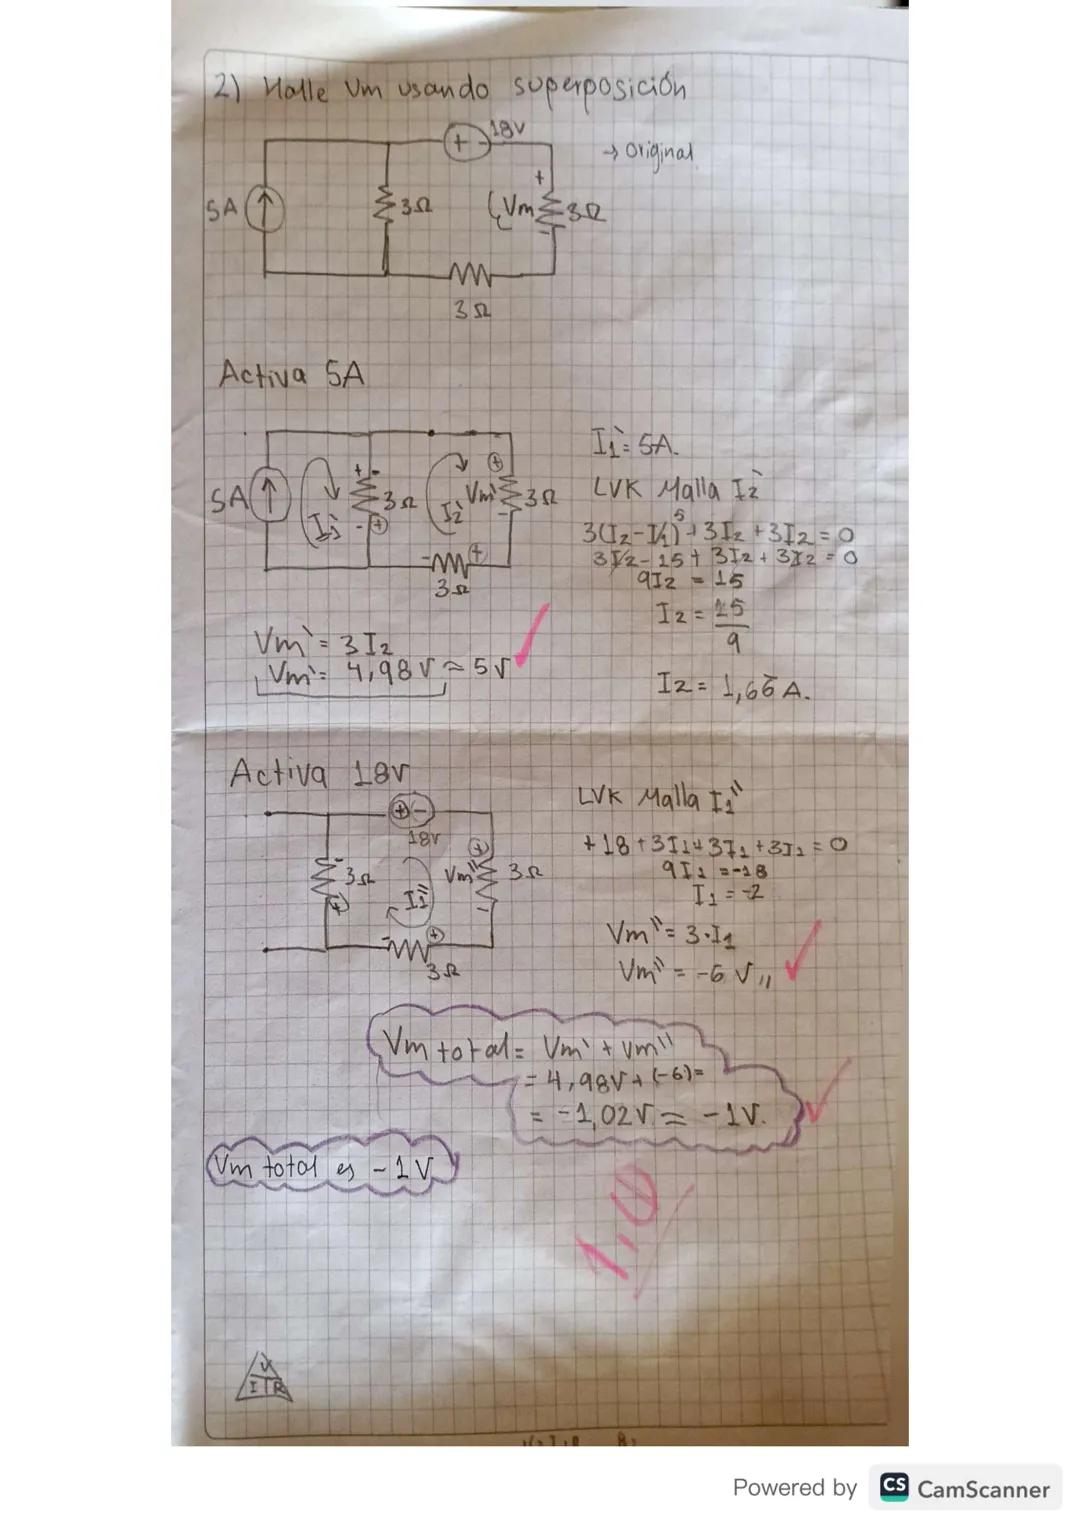 2) Halle Vm usando superposición
18V
→ Original
+ -
5A
3Ω
Vm
+
-
3Ω
3Ω
Activa 5A
5A
I1'
+ -
3Ω
- +
I2'
Vm'
+
-
3Ω
- +
3Ω
I1' = 5A.
LVK Malla I2'
3(I2-I1)5+3I2+3I2=0
3I2-15+3I2+3I2=0
9I2 = 15
I2 = 15
9
I2 = 1,66 A.
Vm' = 3I2
Vm' = 4,98V ≈ 5V
Activa 18V
+ -
18V
3Ω
-
+
I1''
Vm''
+
-
3Ω
- +
3Ω
LVK Malla I1''
+18+3I1+3I1+3I1=0
9I1 =-18
I1 = -2
Vm'' = 3·I1
Vm'' = -6 V,,
Vm total = Vm' + Vm''
= 4,98V+(-6)=
= -1,02V ≈ -1V.
Vm total es -1V
1,0
V
ITR
Powered by CS CamScanner